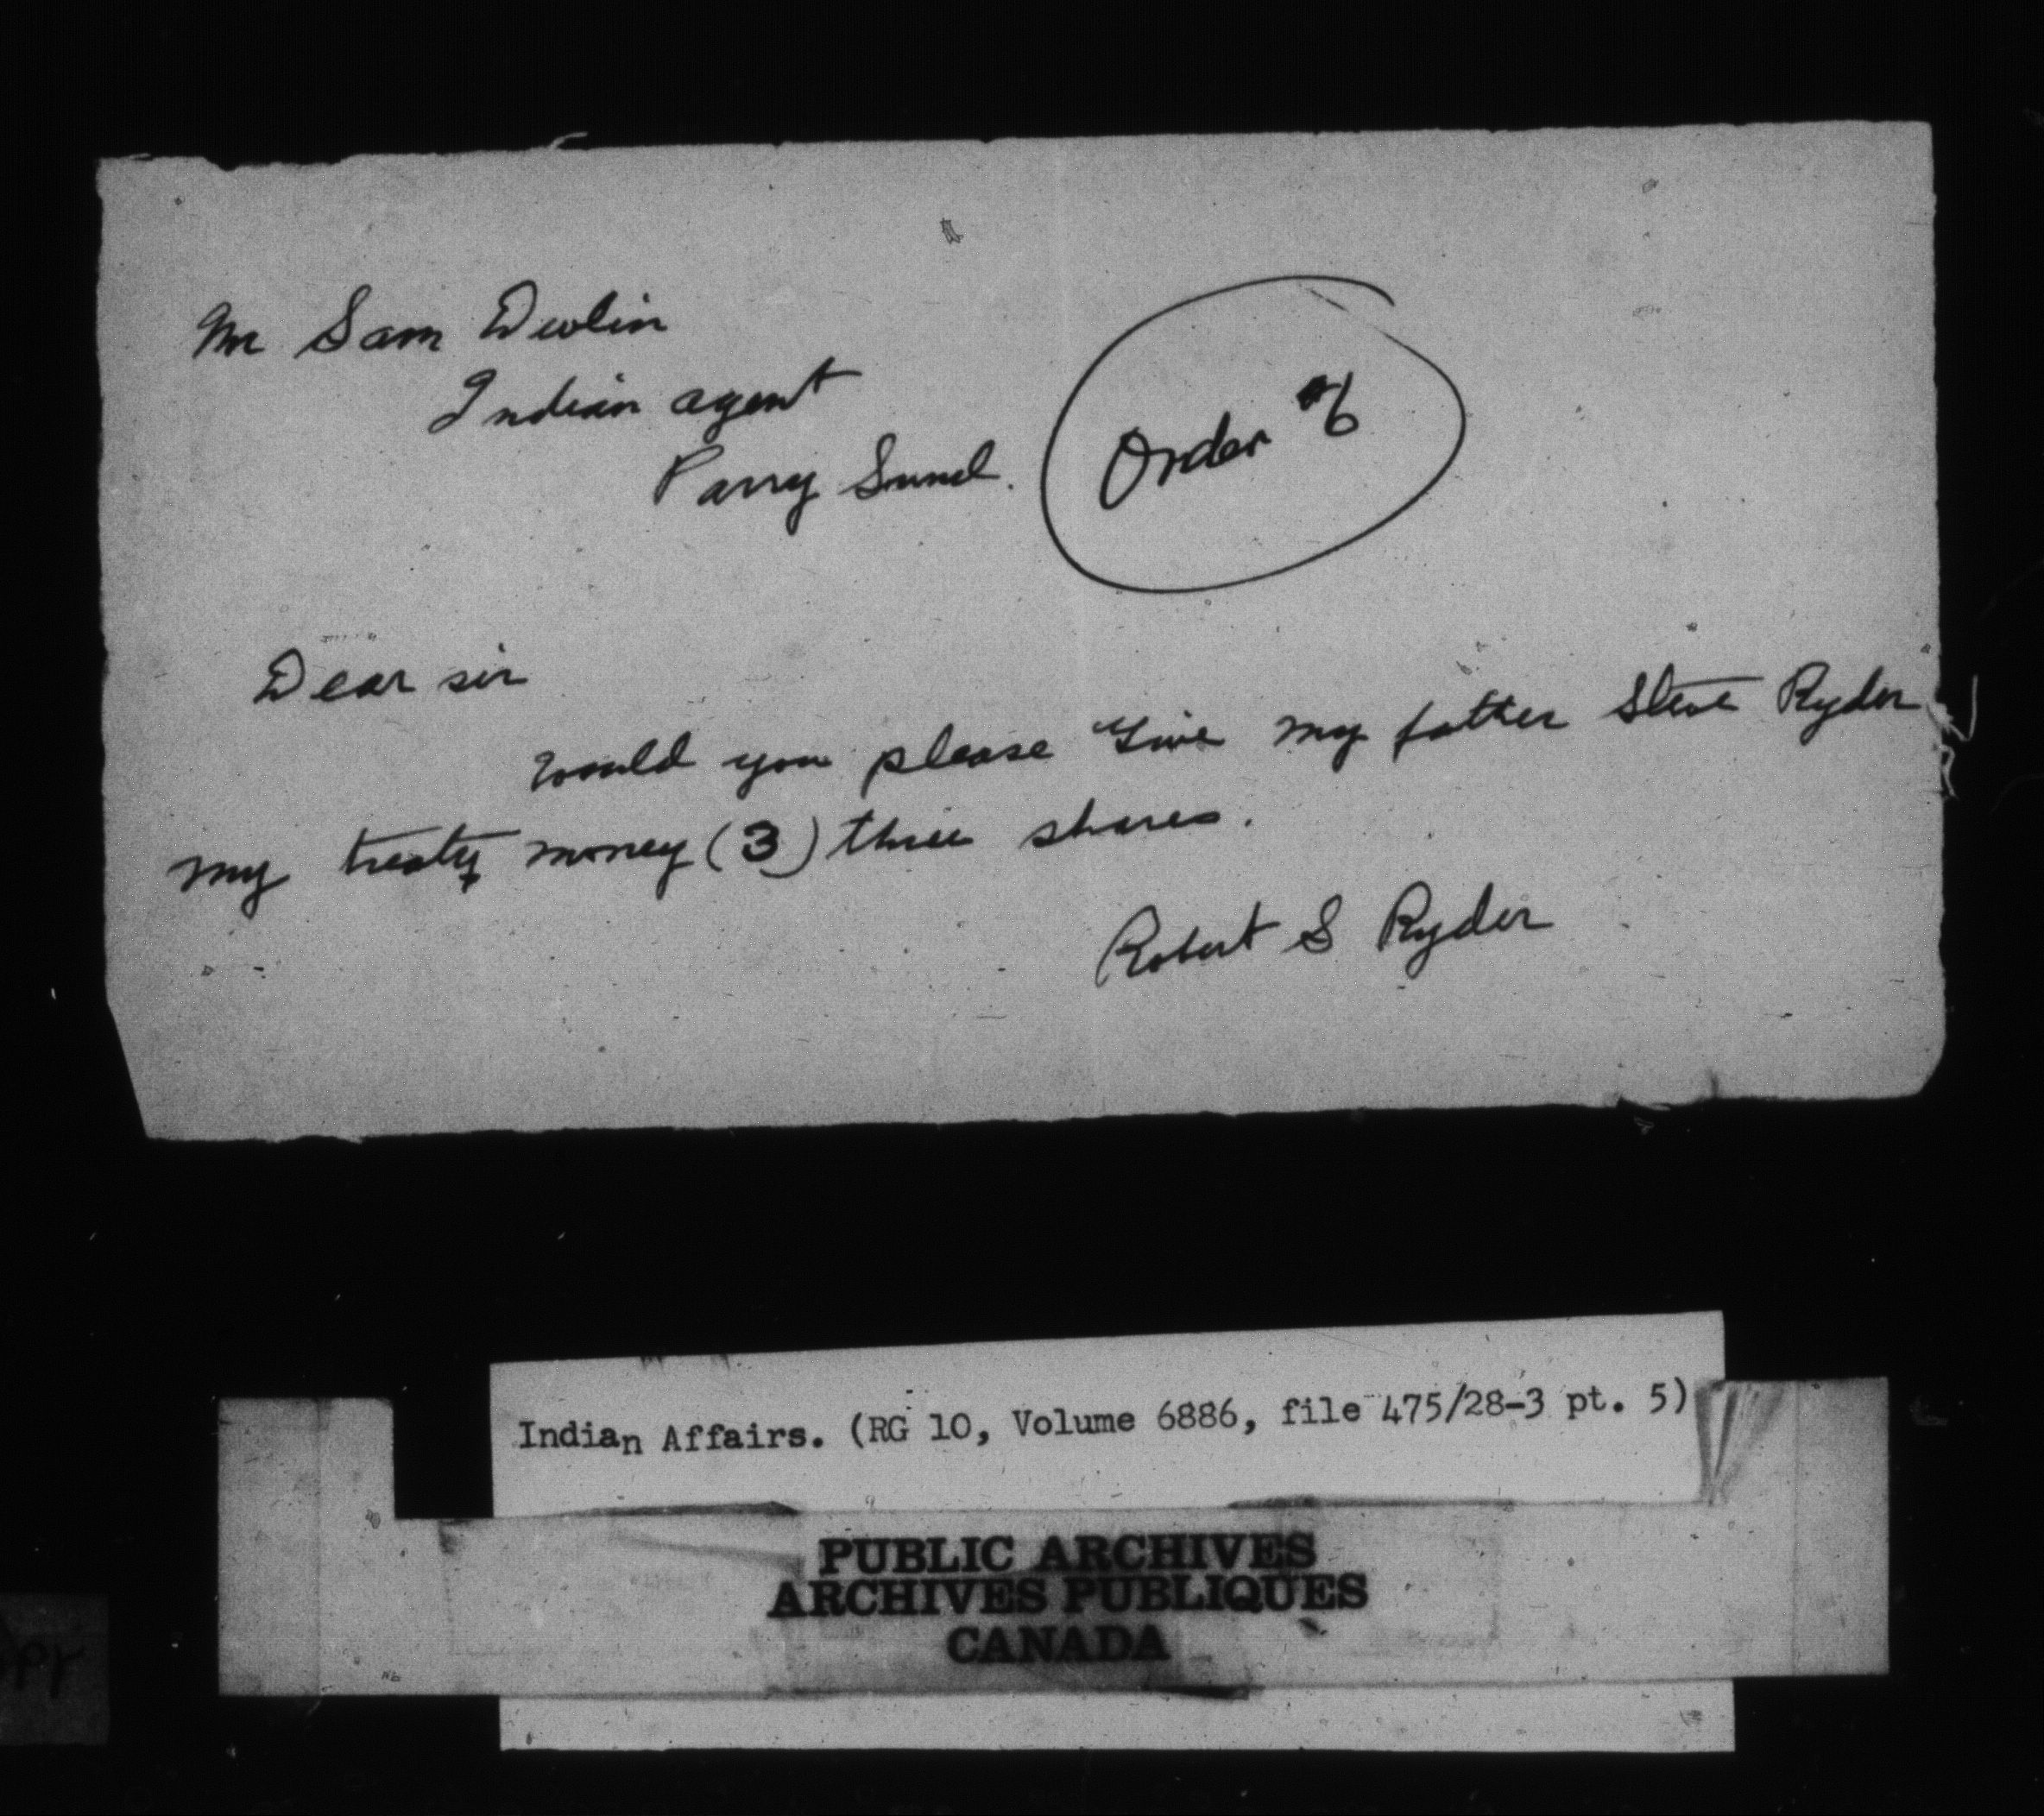 Mr Sam Devlin
Indian agent
Parry Sound.
Order #6
Dear sir
Would you please Give my father Steve Ryder
my treaty money (3) three shares.
Robert S Ryder
Indian Affairs. (RG 10, Volume 6886, file 475/28-3 pt. 5)
PUBLIC ARCHIVES
ARCHIVES PUBLIQUES
CANADA